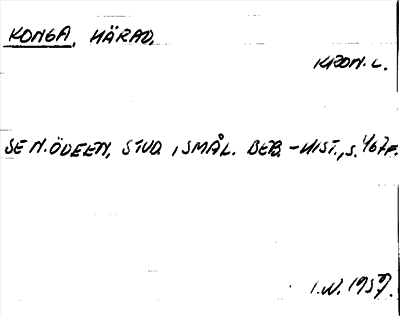 KONGA, HÄRAD.
KRON. L.
SE N. ÖDEEN, STUD. I SMÅL. BEB.-HIST., S. 467F.
I.W. 1959.